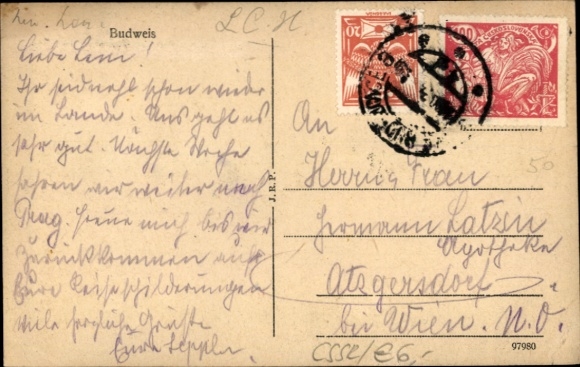 L. C. H
Budweis
Liebe Leni!
Ihr seid wohl schon wieder
im Lande. Uns geht es
sehr gut. Nächste Woche
fahren wir weiter nach
Prag. Freue mich bis wir
zurückkommen auf
Eure Reiseschilderungen
Viele herzliche Grüsse
Eure
J. R. P.
20
100
An
Herrn u. Frau
Hermann Latzin
Apotheke
Atzgersdorf
bei Wien. N. Ö.
50
CSSR/€6,-
97980